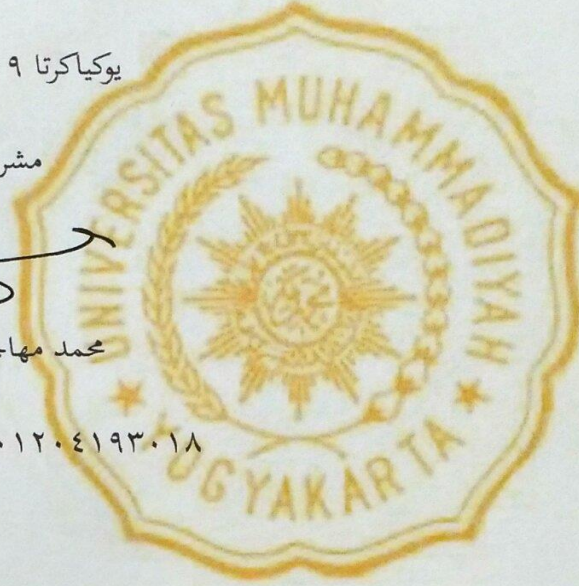 يوكياكرتا ٩
محمد
٠١٢٠٤١٩٣٠١٨
UNIVERSITAS MUHAMMADIYAH
YOGYAKARTA